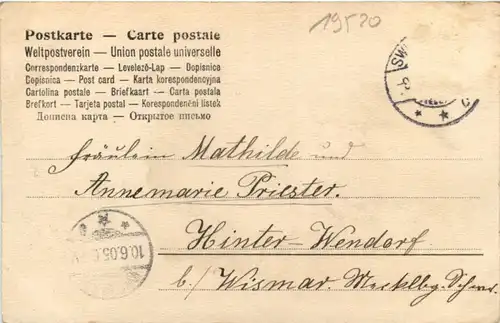 19520
Postkarte — Carte postale
Weltpostverein — Union postale universelle
Correspondenzkarte — Levelező-Lap — Dopisnice
Dopisnica — Post card — Karta korespondencyjna
Cartolina postale — Briefkaart — Carta postala
Brefkort — Tarjeta postal — Korespondenční lístek
Дописна карта — Открытое письмо
SW
Fräulein Mathilde und
Annemarie Priester.
Hinter-Wendorf
b./ Wismar. Mecklbg. Schwer.
10.6.05